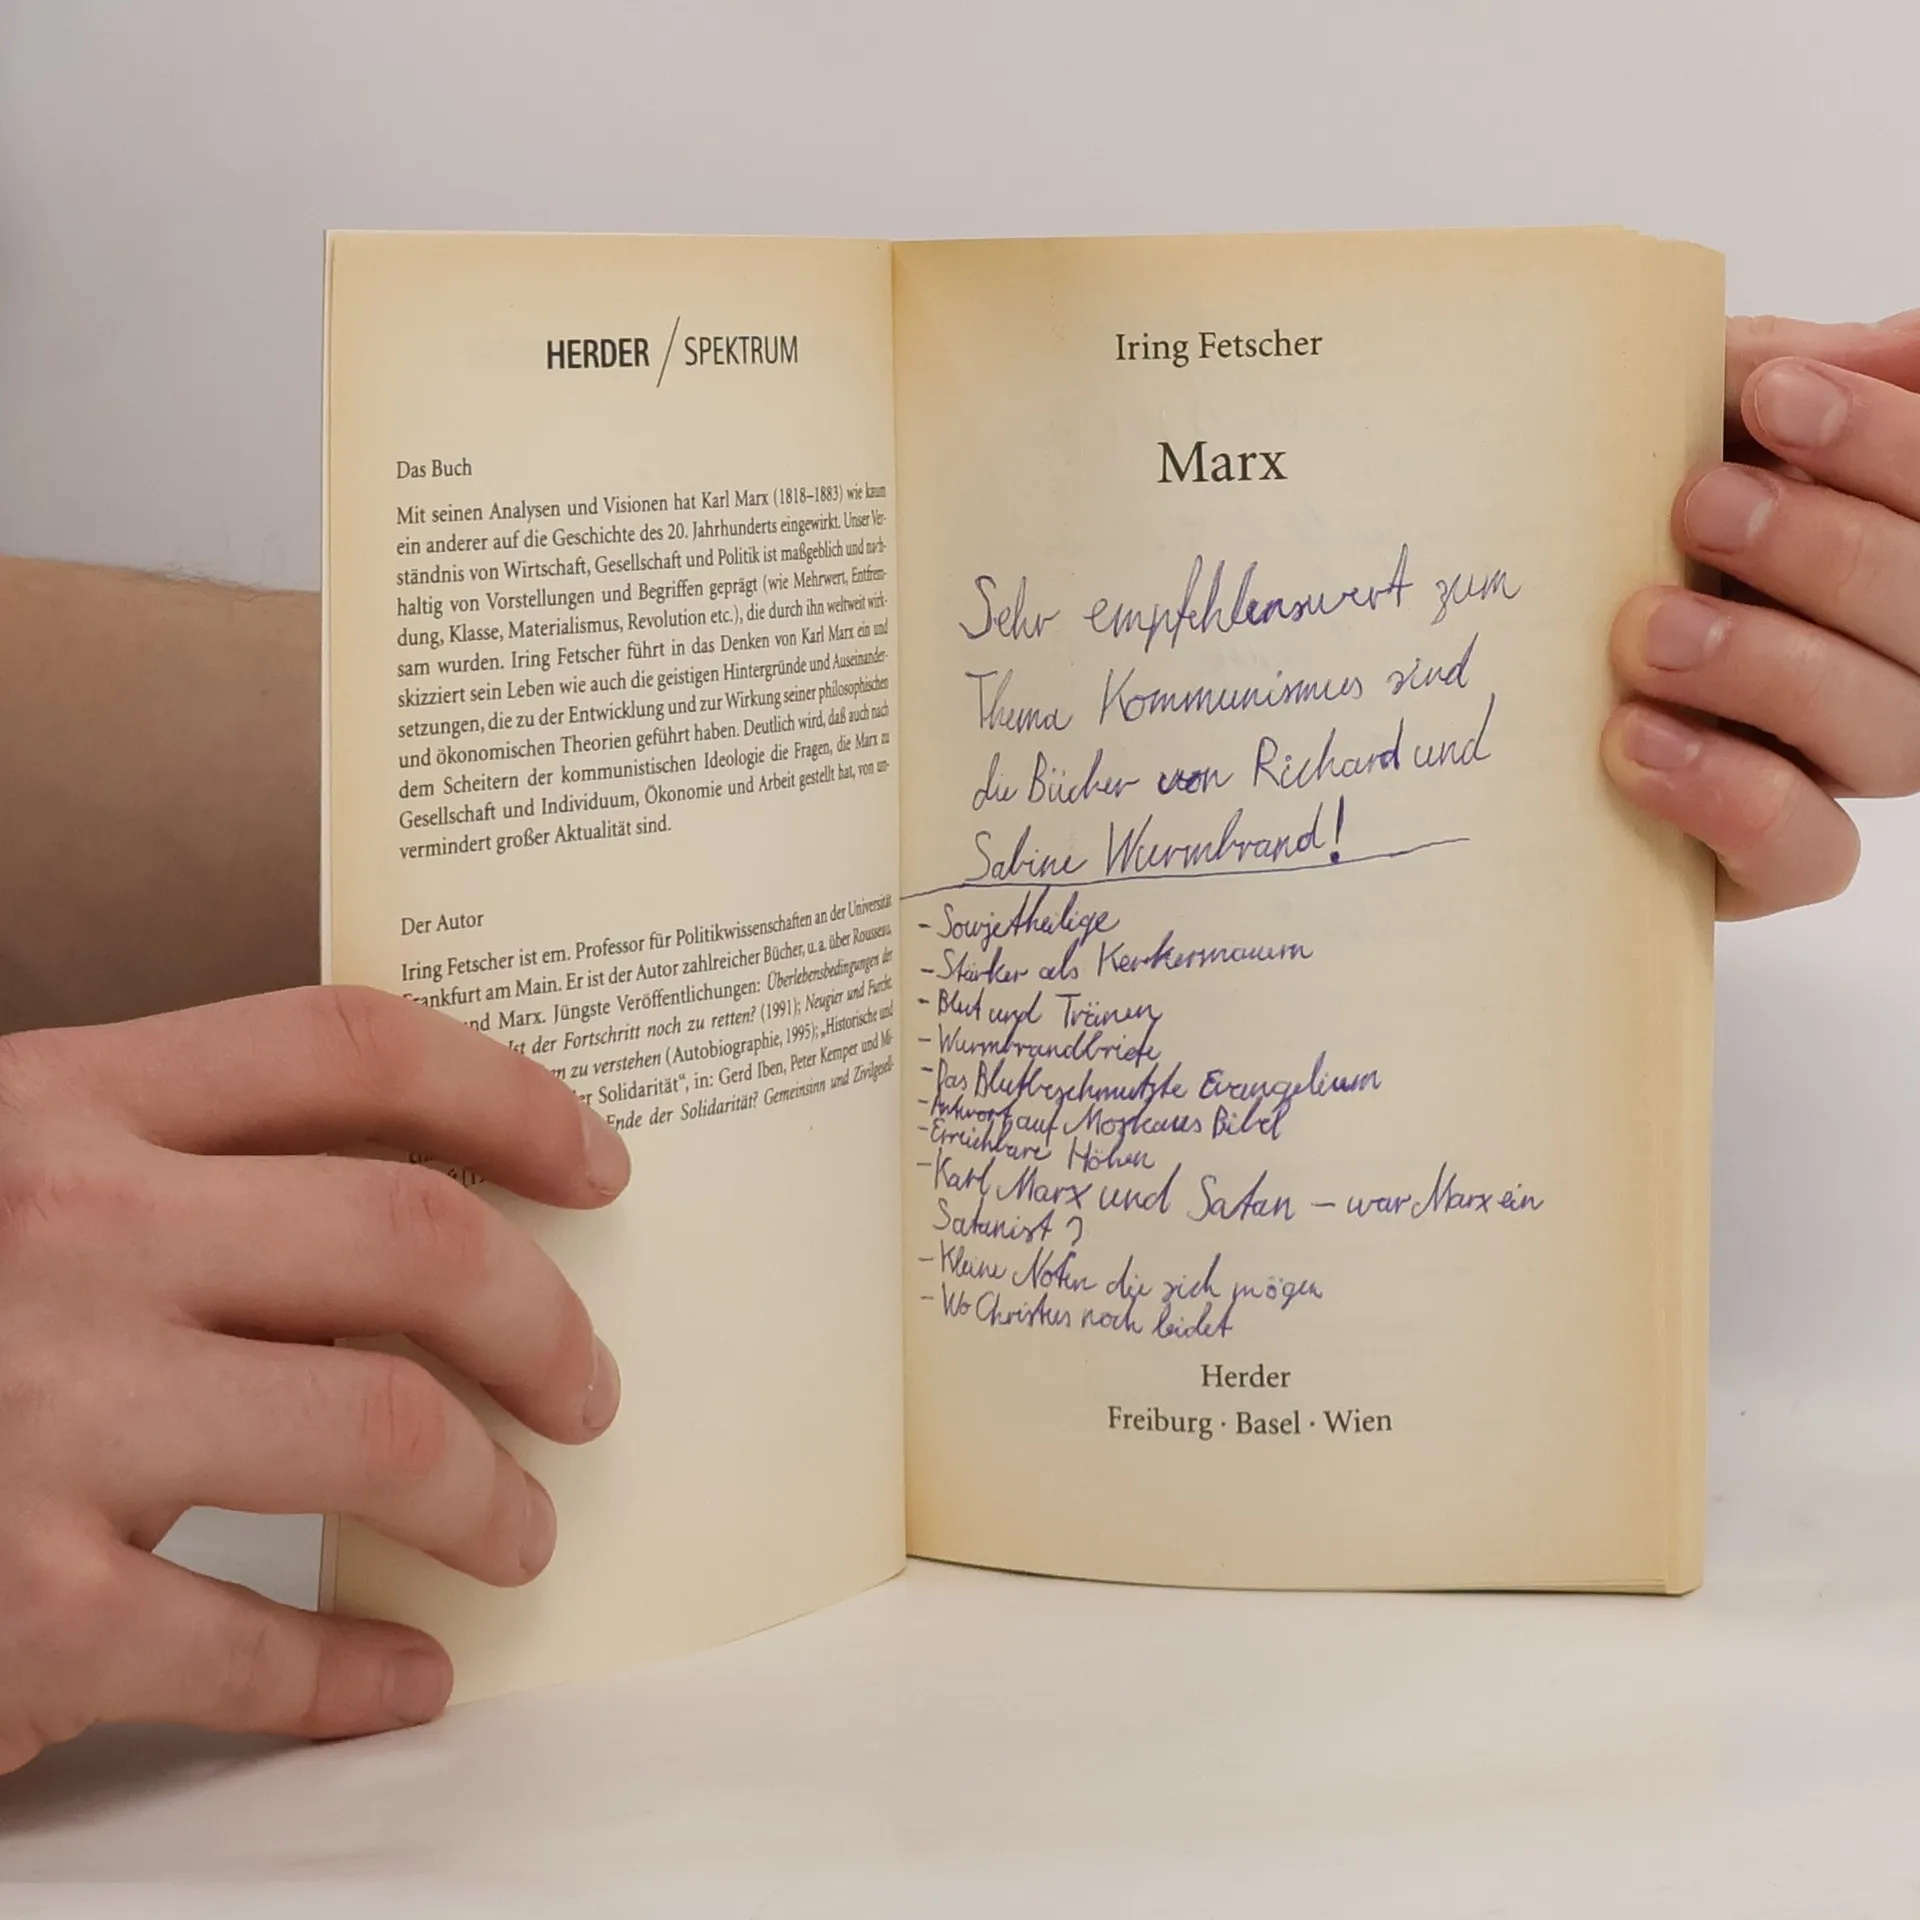 HERDER / SPEKTRUM
Das Buch
Mit seinen Analysen und Visionen hat Karl Marx (1818–1883) wie kaum
ein anderer auf die Geschichte des 20. Jahrhunderts eingewirkt. Unser Ver-
ständnis von Wirtschaft, Gesellschaft und Politik ist maßgeblich und nach-
haltig von Vorstellungen und Begriffen geprägt (wie Mehrwert, Entfrem-
dung, Klasse, Materialismus, Revolution etc.), die durch ihn weltweit wirk-
sam wurden. Iring Fetscher führt in das Denken von Karl Marx ein und
skizziert sein Leben wie auch die geistigen Hintergründe und Auseinander-
setzungen, die zu der Entwicklung und zur Wirkung seiner philosophischen
und ökonomischen Theorien geführt haben. Deutlich wird, daß auch nach
dem Scheitern der kommunistischen Ideologie die Fragen, die Marx zu
Gesellschaft und Individuum, Ökonomie und Arbeit gestellt hat, von un-
vermindert großer Aktualität sind.
Der Autor
Iring Fetscher ist em. Professor für Politikwissenschaften an der Universität
Frankfurt am Main. Er ist der Autor zahlreicher Bücher, u. a. über Rousseau,
und Marx. Jüngste Veröffentlichungen: Überlebensbedingungen der
Ist der Fortschritt noch zu retten? (1991); Neugier und Furcht.
zu verstehen (Autobiographie, 1995); „Historische und
der Solidarität“, in: Gerd Iben, Peter Kemper und Mi-
Ende der Solidarität? Gemeinsinn und Zivilgesell-
Iring Fetscher
Marx
Sehr empfehlenswert zum
Thema Kommunismus sind
die Bücher von Richard und
Sabine Wurmbrand!
- Sowjetheilige
- Stärker als Kerkermauern
- Blut und Tränen
- Wurmbrandbriefe
- Das Blutbeschmutzte Evangelium
- Antwort auf Moskaus Bibel
- Erreichbare Höhen
- Karl Marx und Satan – war Marx ein
Satanist ?
- Kleine Noten die sich mögen
- Wo Christus noch leidet
Herder
Freiburg · Basel · Wien